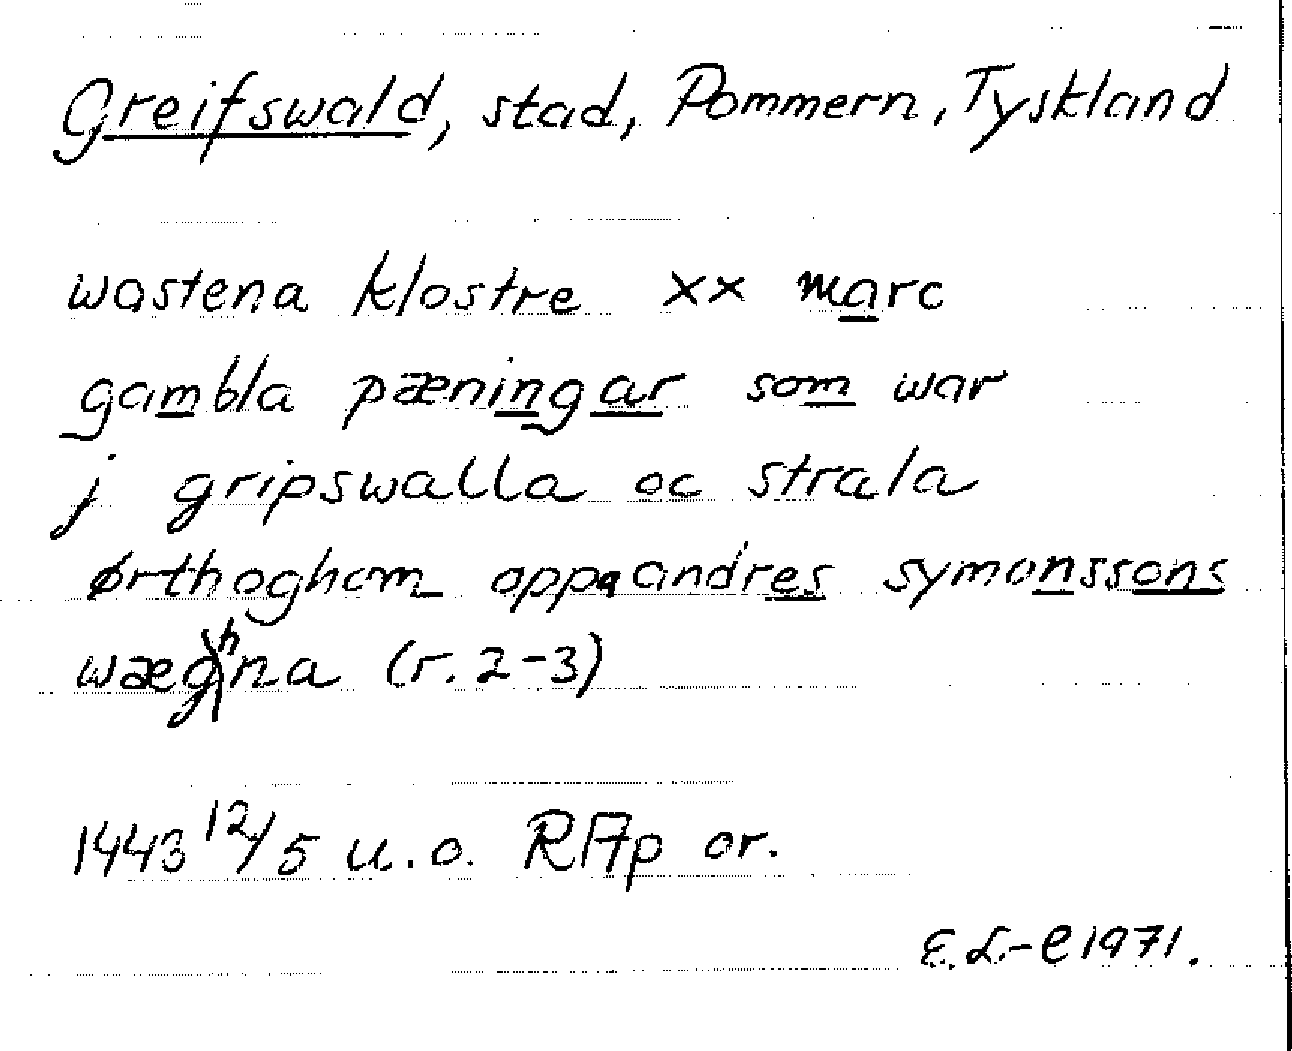 Greifswald, stad, Pommern, Tyskland
wastena klostre xx marc
gambla pæningar som war
j gripswalla oc strala
ørthoghom oppa andres symonssons
wæghna (r. 2-3)
1443 12/5 u.o. RAp or.
E.L-e 1971.